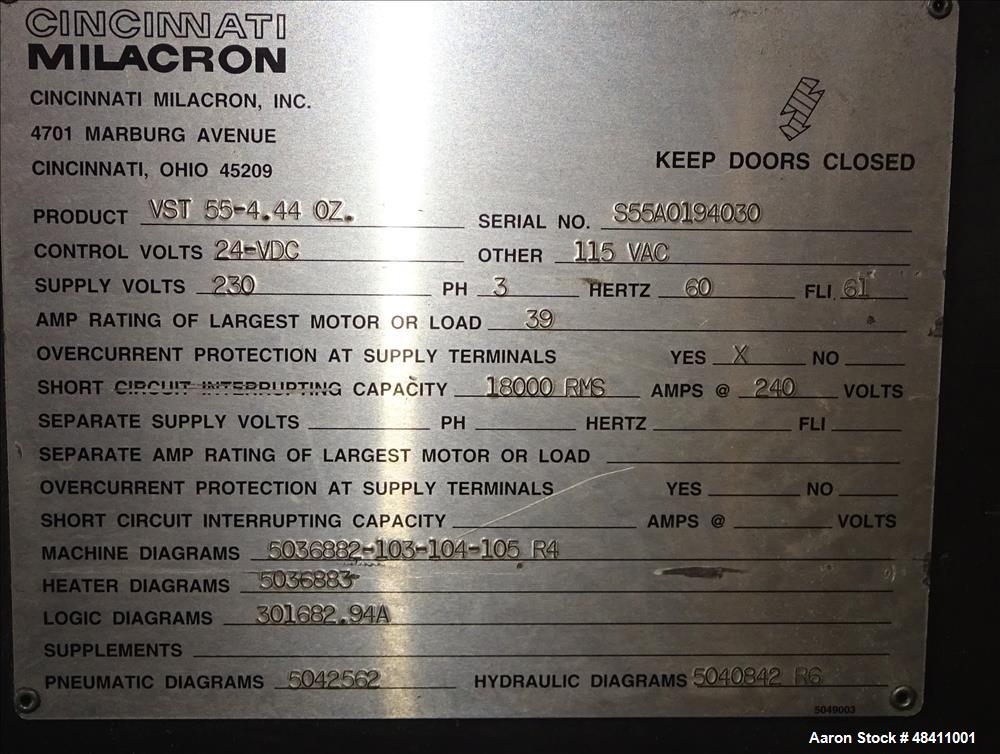 CINCINNATI
MILACRON
CINCINNATI MILACRON, INC.
4701 MARBURG AVENUE
CINCINNATI, OHIO 45209
KEEP DOORS CLOSED
PRODUCT VST 55-4.44 OZ. SERIAL NO. S55A0194030
CONTROL VOLTS 24-VDC OTHER 115 VAC
SUPPLY VOLTS 230 PH 3 HERTZ 60 FLI 61
AMP RATING OF LARGEST MOTOR OR LOAD 39
OVERCURRENT PROTECTION AT SUPPLY TERMINALS YES X NO
SHORT CIRCUIT INTERRUPTING CAPACITY 18000 RMS AMPS @ 240 VOLTS
SEPARATE SUPPLY VOLTS PH HERTZ FLI
SEPARATE AMP RATING OF LARGEST MOTOR OR LOAD
OVERCURRENT PROTECTION AT SUPPLY TERMINALS YES NO
SHORT CIRCUIT INTERRUPTING CAPACITY AMPS @ VOLTS
MACHINE DIAGRAMS 5036882-103-104-105 R4
HEATER DIAGRAMS 5036883
LOGIC DIAGRAMS 301682.94A
SUPPLEMENTS
PNEUMATIC DIAGRAMS 5042562 HYDRAULIC DIAGRAMS 5040842 R6
5049003
Aaron Stock # 48411001